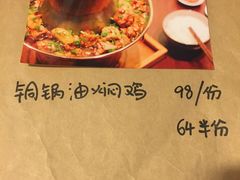 铜锅油焖鸡 98/份
64半份